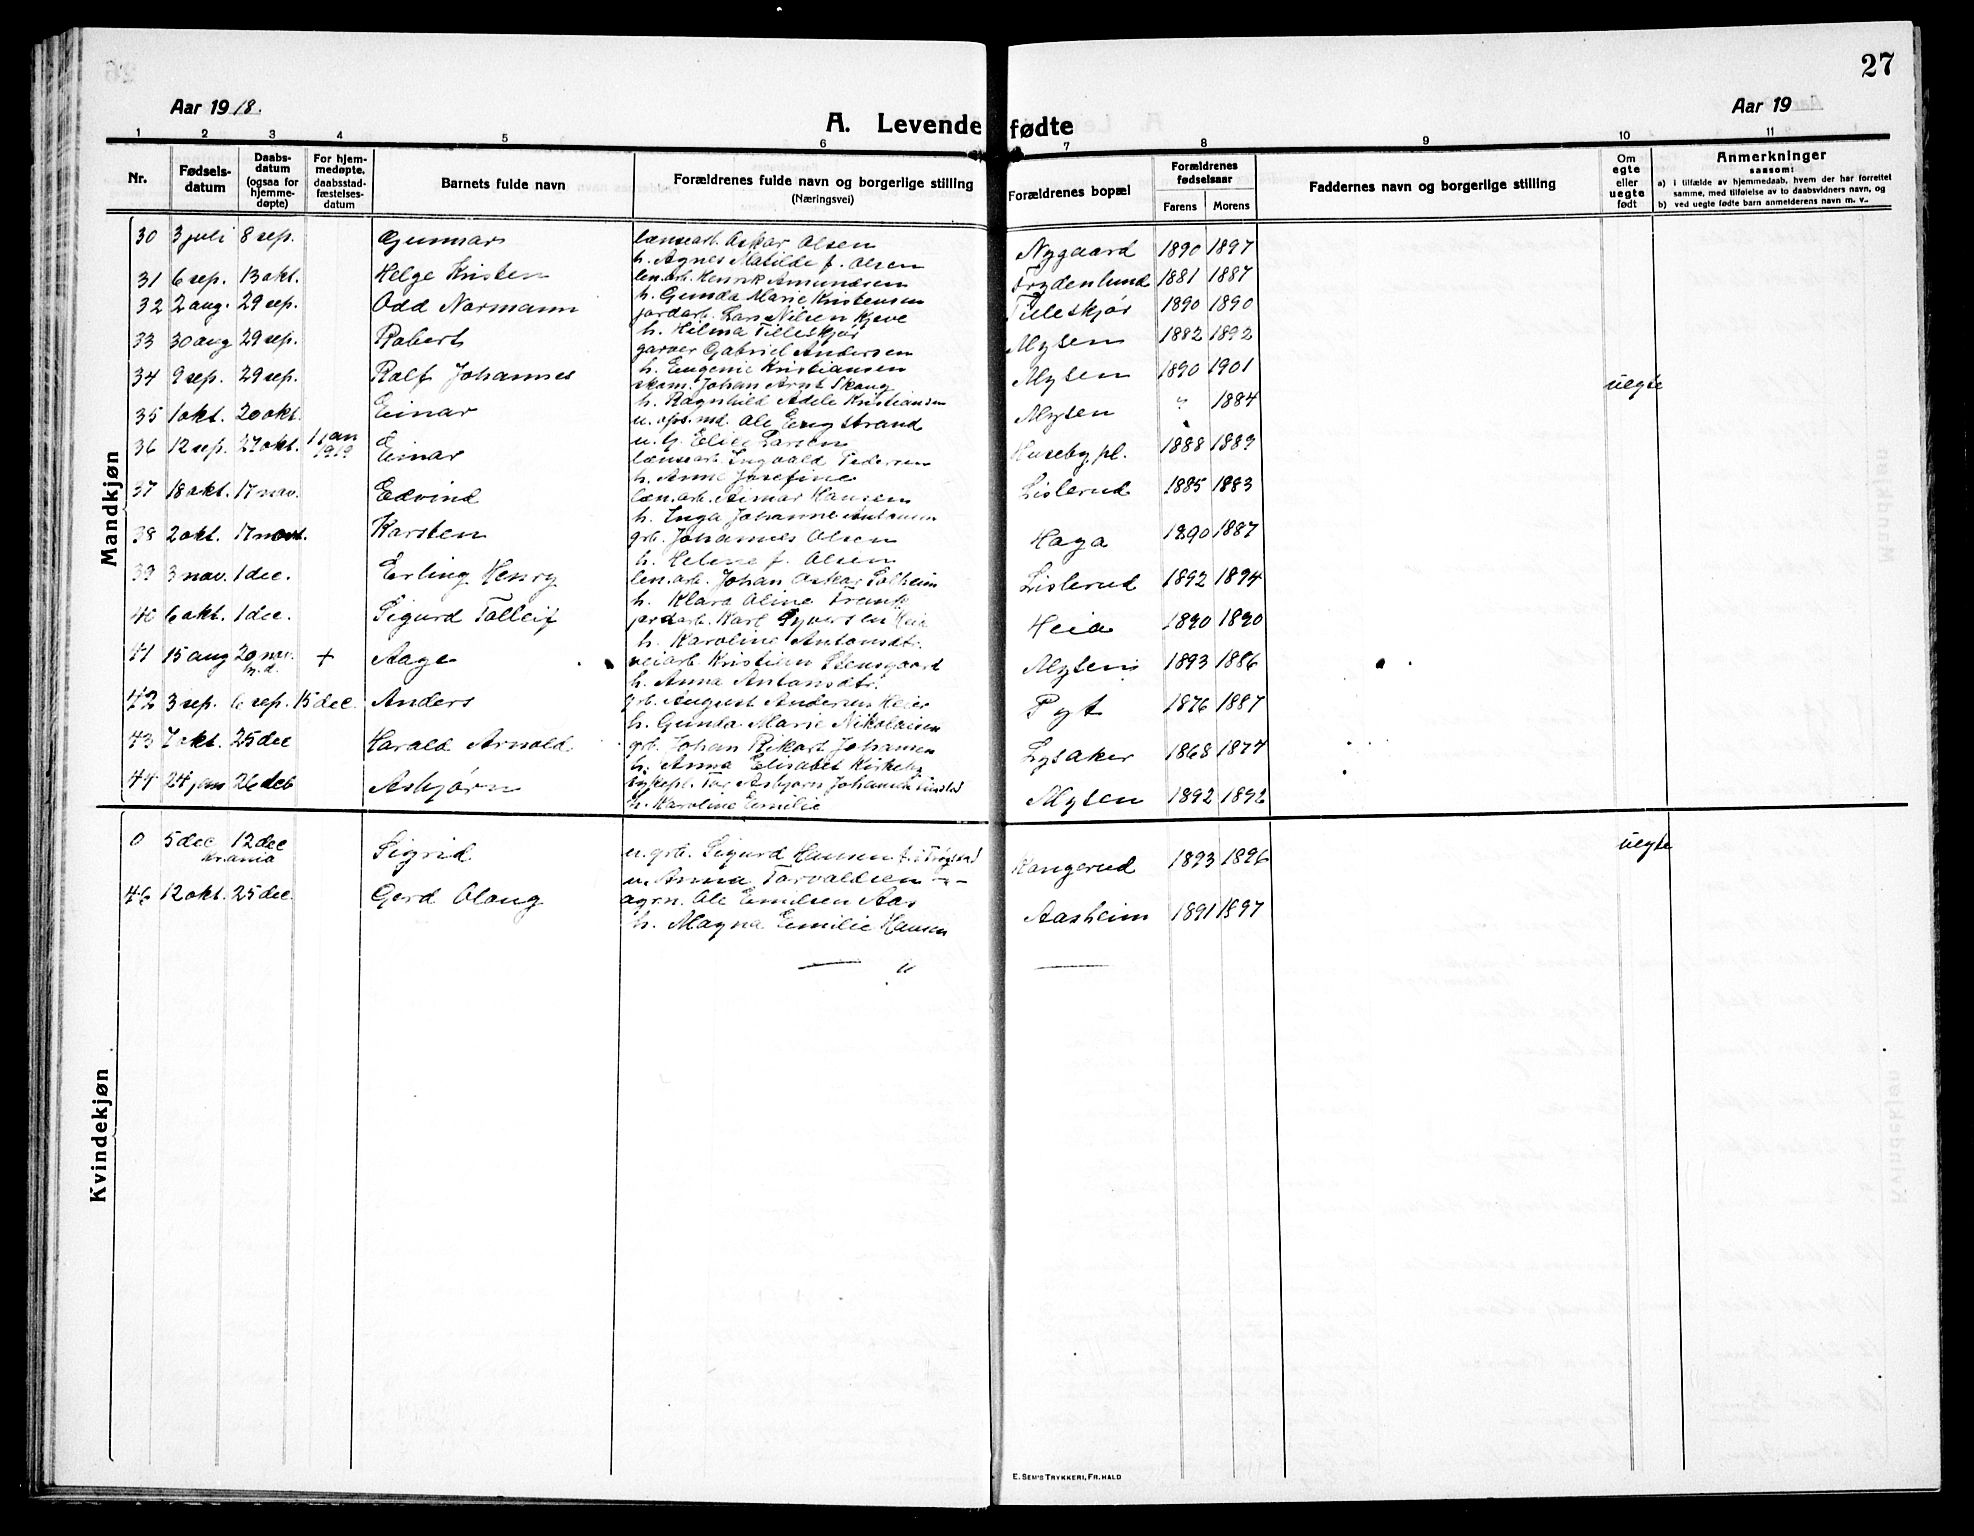 27
Aar 1918.
Aar 19
A. Levende fødte
1 2 3 4 5 6 7 8 9 10 11
Nr.
Fødsels-datum
Daabs-datum (ogsaa for hjemme-døpte)
For hjem-medøpte, daabsstad-fæstelses-datum
Barnets fulde navn
Forældrenes fulde navn og borgerlige stilling (Næringsvei)
Forældrenes bopæl
Forældrenes fødselsaar
Farens Morens
Faddernes navn og borgerlige stilling
Om egte eller uegte født
Anmerkninger saasom:
a) I tilfælde av hjemmedaab, hvem der har forrettet samme, med tilføielse av to daabsvidners navn, og
b) ved uegte født barn anmelderens navn m. v..
Mandkjøn
30 3 juli 8 sep. Gunnar lænsearb. Oskar Olsen Nygaard 1890 1897
h. Agnes Matilde f. Olsen
31 6 sep. 13 okt. Helge Kristen len.arb. Henrik Amundsen Frydenlund 1881 1887
h. Gunda Marie Kristensen
32 2 aug. 29 sep. Odd Normann jordarb. Lars Nilsen Kjeve Tilleskjør 1890 1890
h. Hilma Tilleskjør
33 30 aug 29 sep. Robert garver Gabriel Andersen Mysen 1882 1892
h. Eugenie Kristiansen
34 9 sep. 29 sep. Rolf Johannes skom. Johan Arnt Skaug Mysen 1890 1901
h. Ragnhild Adele Kristiansen
35 1 okt. 20 okt. Einar Ole Strand Mysen ? 1884 uegte
Larsen
36 12 sep. 27 okt. 1 jan 1919 Einar lænsearb. Ingvald Pedersen Huseby pl. 1888 1889
h. Anne Josefine
37 18 okt. 17 nov. Edvind læn.arb. Aimar Hansen Lislerud 1885 1883
h. Inga Johanne Antonsen
38 2 okt. 17 nov. Karsten grb. Johannes Olsen Haga 1890 1887
h. Helene f. Olsen
39 3 nov. 1 dec. Erling Henry len.arb. Johan Oskar Solheim Lislerud 1892 1894
h. Klara Oline
40 6 okt. 1 dec. Sigurd Tolleif jordarb. Karl Syversen Heia Heia 1890 1890
h. Karoline Antonsdtr.
41 15 aug 20 nov. h.d. + Aage veiarb. Kristian Stensgaard Mysen 1893 1886
h. Anna Antonsdtr.
42 3 sep. 6 sep. 15 dec. Anders grb. August Andersen Heier Pyt 1876 1887
h. Gunda Marie Nikolaisen
43 7 okt. 25 dec Harald Arnold grb. Johan Rikart Johansen Lysaker 1868 1877
h. Anna Elisabet Kirkeby
44 24 jan 26 deb Asbjørn Tor Asbjørn Johannes Mysen 1892 1892
h. Karoline Emilie
Kvindekjøn
0 5 dec 12 dec Sigrid u. grb. Sigurd Hansen fr. Trøgstad Kangerud 1893 1896 uegte
u. Anna Torvaldsen -"-
46 12 okt. 25 dec. Gerd Olaug agrn. Ole Emilsen Aas Aasheim 1891 1897
h. Magna Emilie Hansen
E. SEM'S TRYKKERI, FR.HALD